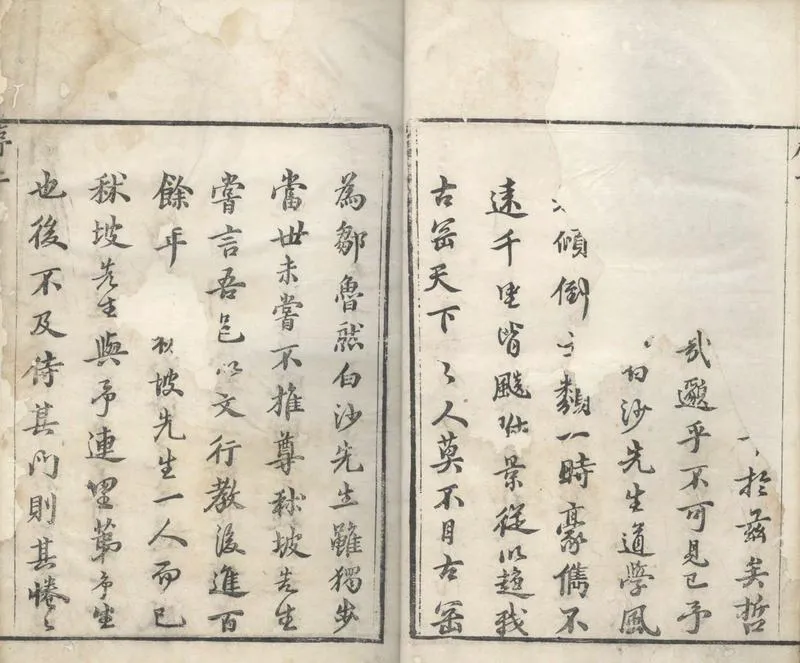 於茲矣哲
哉邈乎不可見已予
白沙先生道學風
傾倒士類一時豪儁不
遠千里皆飈馳景從以趨我
古岡天下々人莫不目古岡
為鄒魯然白沙先生雖獨步
當世未嘗不推尊秫坡先生
嘗言吾邑以文行教後進百
餘年 秫坡先生一人而已
秫坡先生與予連里第予生
也後不及侍其門則其惓々